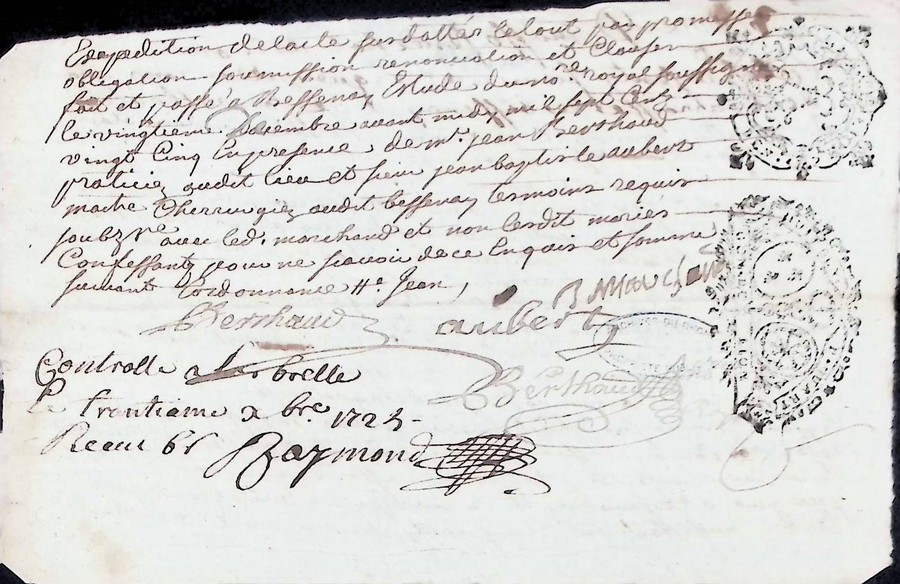 Expedition delacte surdatter letout par promesse
obligation soumission renonciation et Clauses
fait et passé a Bessenay Etude du no.re royal soussigne
le vingtieme Décembre avant midy mil sept Cent
vingt Cinq En presence de m.e jean Berthaud
praticien audit lieu et sieur jean baptiste aubert
maitre Chirurgien audit bessenay temoins requis
soubz.ne avec led. marchand et non lesdit mariés
Confessants pour ne scavoir de ce Enquis et sommé
suivant Lordonnance Jean
B Marchand
Berthaud aubert
Controlle a Larbrelle
Le trentiame xbre 1725
Receu 6s
Berthaud
Raymond